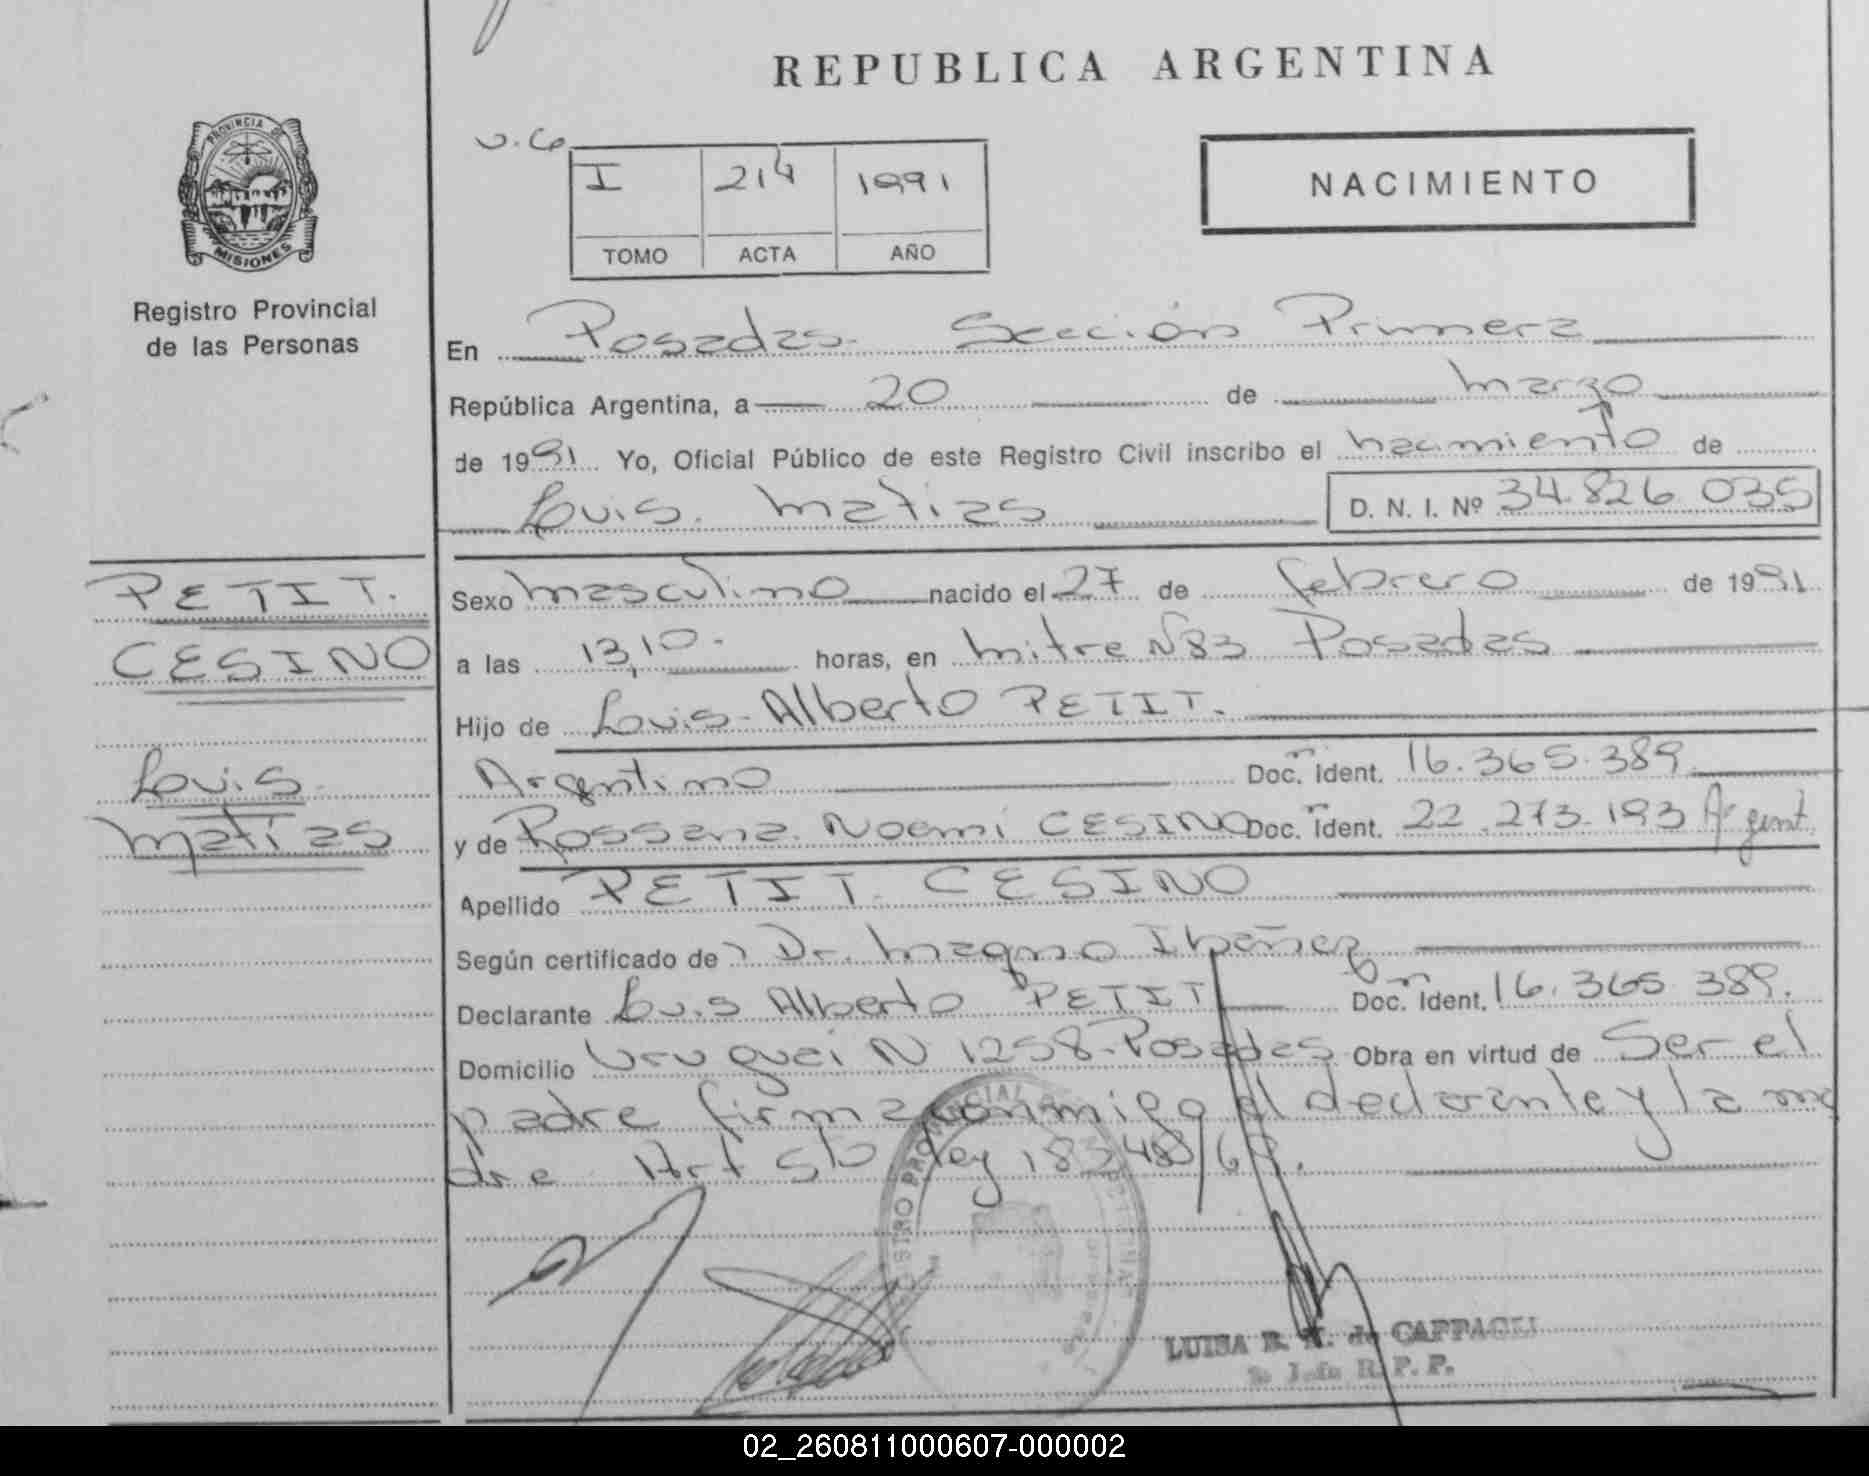 REPUBLICA ARGENTINA
PROVINCIA DE
MISIONES
Registro Provincial
de las Personas
I 214 1991
TOMO ACTA AÑO
NACIMIENTO
En Posadas. Sección Primera
República Argentina, a 20 de marzo
de 1991 Yo, Oficial Público de este Registro Civil inscribo el nacimiento de
Luis. Matias D. N. I. Nº 34.826.035
PETIT.
CESINO
Luis
Matías
Sexo masculino nacido el 27 de febrero de 1991
a las 13,10. horas, en Mitre N 83 Posadas
Hijo de Luis Alberto PETIT.
Argentino Doc. Ident. 16.365.389
y de Rossana Noemi CESINO Doc. Ident. 22.273.193 Argent.
Apellido PETIT. CESINO
Según certificado de Dr. Magno Ibañez
Declarante Luis Alberto PETIT Doc. Ident. 16.365.389.
Domicilio Uruguai N 1258-Posadas Obra en virtud de Ser el
padre firma conmigo el declarante y la ma
dre Art 5to ley 18348/69.
LUISA R. de
R. P. P.
02_260811000607-000002